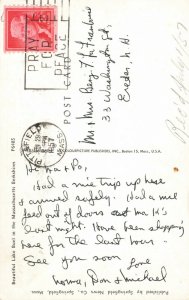 PRAY
FOR
PEACE
POST CARD
Mr + Mrs Benj. F.
33 Washington St
Exeter, N.H.
PITTSFIELD
MASS.
1957
COLOURPICTURE PUBLISHERS, INC., Boston 15, Mass., U.S.A.
Beautiful Lake Buel in the Massachusetts Berkshires
Published by Springfield News Co., Springfield, Mass.
Hi Ma + Pa,
Had a nice trip up here
& arrived safely. Had a nice
feed out of doors at Ma K's
last night. Have been shopping
here for the last hour.
See you soon
Love
Norma, Don & Michael